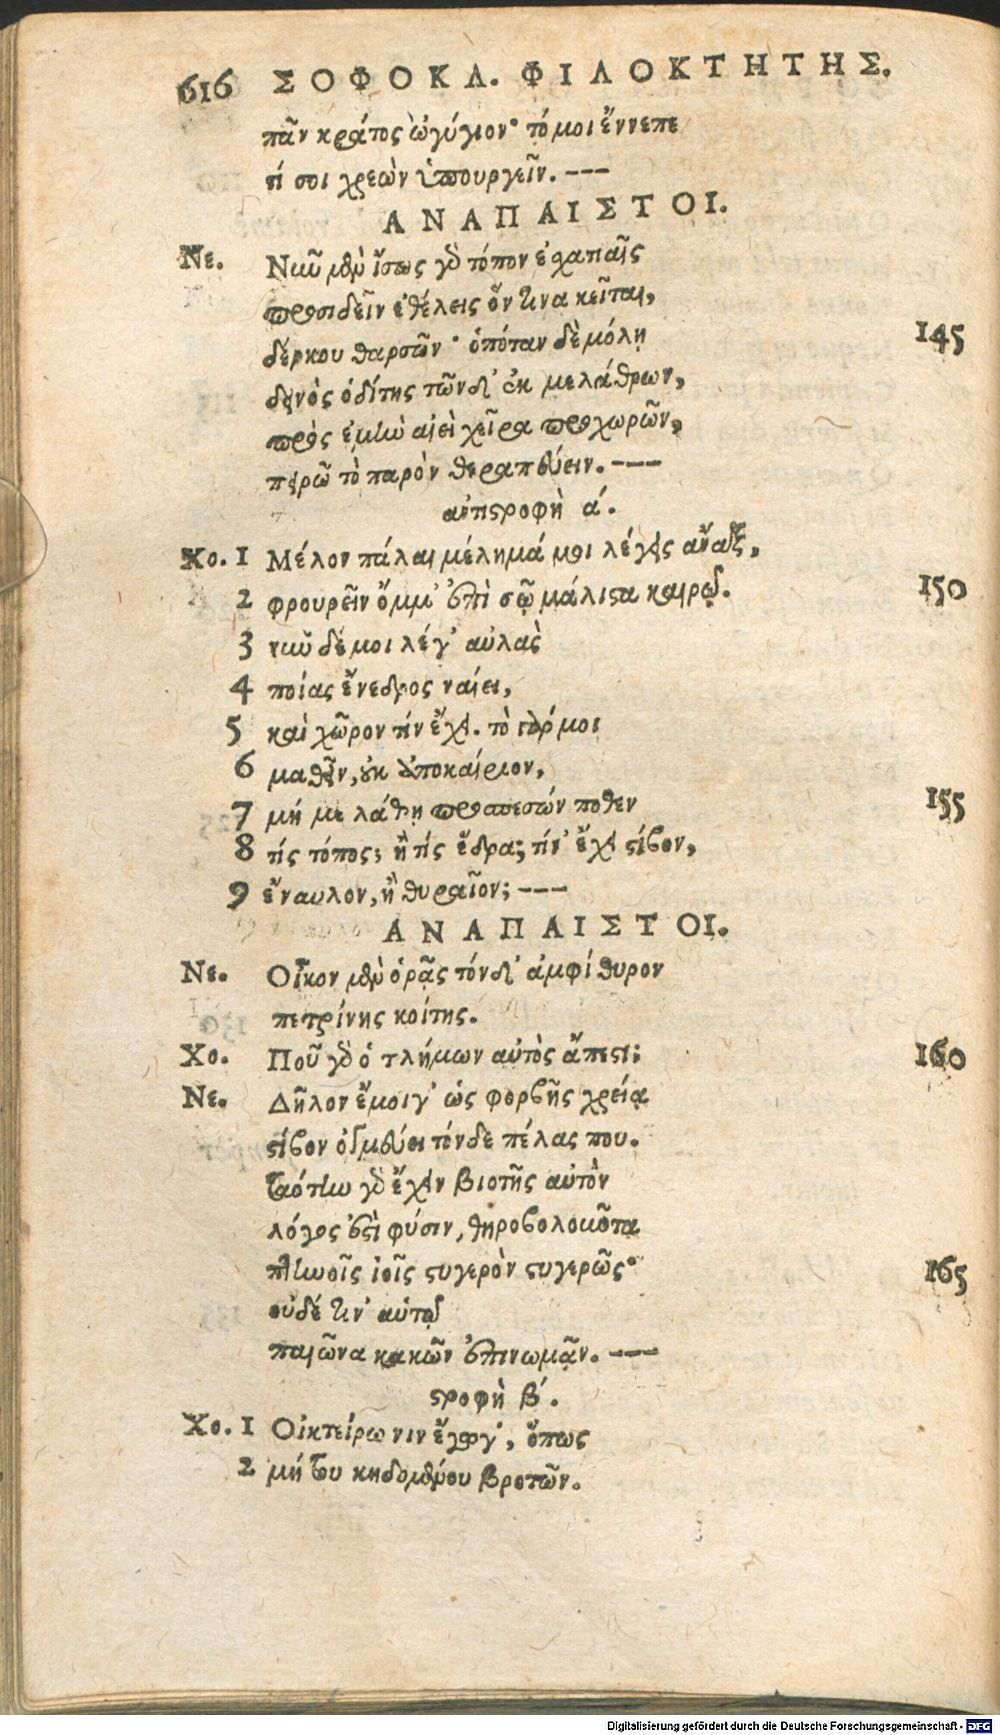 616 ΣΟΦΟΚΛ. ΦΙΛΟΚΤΗΤΗΣ.
πᾶν κράτος ὠγύγιον· τό μοι ἔννεπε
τί σοι χρεὼν ὑπουργεῖν. ---
ΑΝΑΠΑΙΣΤΟΙ.
Νε. Νῦν μὲν ἴσως γὰρ τόπον ἐσχατιαῖς
προσιδεῖν ἐθέλεις ὅν τινα κεῖται,
δέρκου θαρσῶν· ὁπόταν δὲ μόλῃ 145
δεινὸς ὁδίτης τῶνδ᾽ ἐκ μελάθρων,
πρὸς ἐμὴν αἰεὶ χεῖρα προχωρῶν,
πειρῶ τὸ παρὸν θεραπεύειν. ---
ἀντιστροφὴ ά.
Χο. 1 Μέλον πάλαι μέλημά μοι λέγεις ἄναξ,
2 φρουρεῖν ὄμμ᾽ ἐπὶ σῷ μάλιστα καιρῷ. 150
3 νῦν δέ μοι λέγ᾽ αὐλὰς
4 ποίας ἔνεδρος ναίει,
5 καὶ χῶρον τίν ἔχει. τὸ γάρ μοι
6 μαθεῖν, οὐκ ἀποκαίριον,
7 μή με λάθῃ προσπεσών ποθεν 155
8 τίς τόπος; ἢ τίς ἕδρα; τίν᾽ ἔχει στίβον,
9 ἔναυλον, ἢ θυραῖον; ---
ΑΝΑΠΑΙΣΤΟΙ.
Νε. Οἶκον μὲν ὁρᾷς τόνδ᾽ ἀμφίθυρον
πετρίνης κοίτης.
Χο. Ποῦ γὰρ ὁ τλήμων αὐτὸς ἄπεστι; 160
Νε. Δῆλον ἔμοιγ᾽ ὡς φορβῆς χρείᾳ
στίβον ὀγμεύει τόνδε πέλας που.
ταύτην γὰρ ἔχειν βιοτῆς αὐτὸν
λόγος ἐστὶ φύσιν, θηροβολοῦντα
πτηνοῖς ἰοῖς στυγερὸν στυγερῶς· 165
οὐδέ τιν᾽ αὐτῷ
παιῶνα κακῶν ἐπινωμᾷν. ---
στροφὴ β΄.
Χο. 1 Οἰκτείρω νιν ἔγωγ᾽, ὅπως
2 μή του κηδομένου βροτῶν.
Digitalisierung gefördert durch die Deutsche Forschungsgemeinschaft - DFG